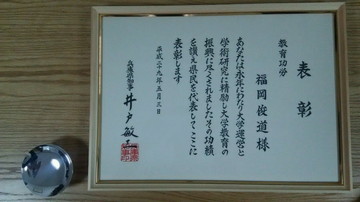 表彰
教育功労
福岡俊道様
あなたは永年にわたり大学運営と
学術研究に精励し大学教育の
振興に尽くされましたその功績
を讃え県民を代表してここに
表彰します
平成二十九年五月三日
兵庫県知事 井戸敏三